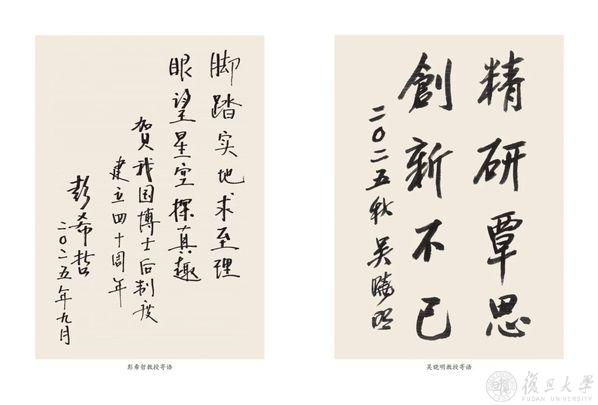 脚踏实地求至理
眼望星空探真趣
贺我国博士后制度
建立四十周年
彭希哲
二〇二五年九月
彭希哲教授寄语
精研覃思
創新不已
二〇二五秋 吴曉明
吴晓明教授寄语
復旦大學
FUDAN UNIVERSITY